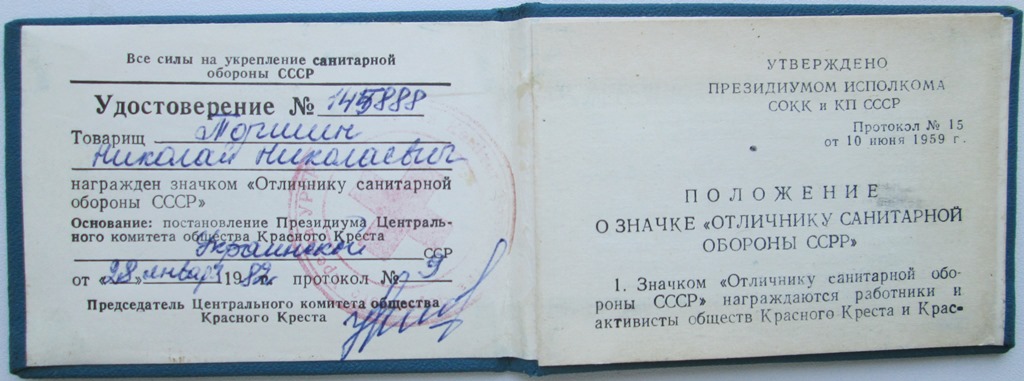 Все силы на укрепление санитарной
обороны СССР
Удостоверение № 145888
Товарищ
Николай Николаевич
награжден значком «Отличнику санитарной
обороны СССР»
Основание: постановление Президиума Централь-
ного комитета общества Красного Креста
Украинской ССР
от «28» января 1982 г. протокол № 9
Председатель Центрального комитета общества
Красного Креста
УТВЕРЖДЕНО
ПРЕЗИДИУМОМ ИСПОЛКОМА
СОКК и КП СССР
Протокол № 15
от 10 июня 1959 г.
ПОЛОЖЕНИЕ
О ЗНАЧКЕ «ОТЛИЧНИКУ САНИТАРНОЙ
ОБОРОНЫ ССРР»
1. Значком «Отличнику санитарной обо-
роны СССР» награждаются работники и
активисты обществ Красного Креста и Крас-